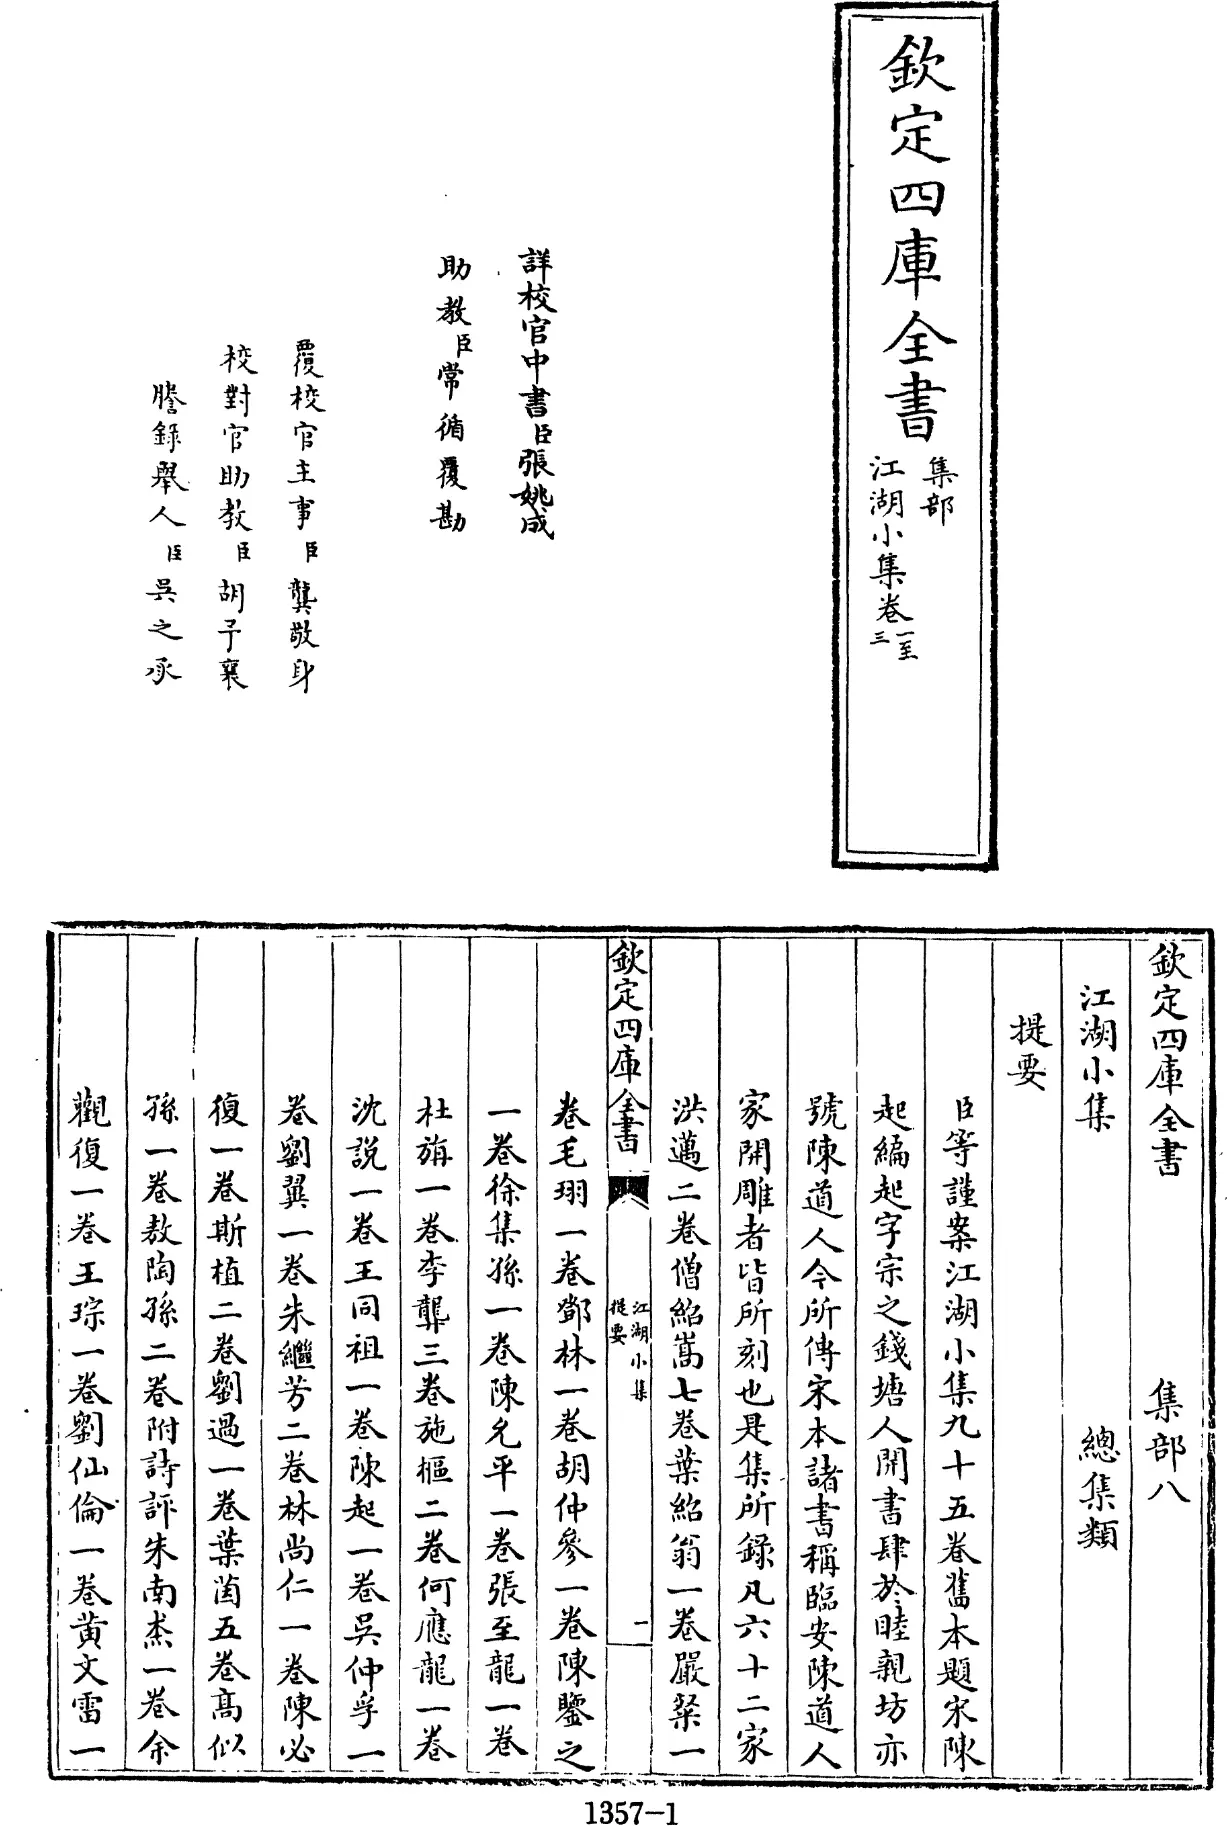 欽定四庫全書
集部
江湖小集卷一至三
詳校官中書臣張姚成
助教臣常循覆勘
覆校官主事臣龔敬身
校對官助教臣胡予襄
謄錄舉人臣吳之承
欽定四庫全書 集部八
江湖小集 總集類
提要
臣等謹案江湖小集九十五卷舊本題宋陳
起編起字宗之錢塘人開書肆於睦親坊亦
號陳道人今所傳宋本諸書稱臨安陳道人
家開雕者皆所刻也是集所錄凡六十二家
洪邁二卷僧紹嵩七卷葉紹翁一卷嚴粲一
欽定四庫全書
江湖小集
提要
一
卷毛珝一卷鄧林一卷胡仲參一卷陳鑒之
一卷徐集孫一卷陳允平一卷張至龍一卷
杜旃一卷李龏三卷施樞二卷何應龍一卷
沈說一卷王同祖一卷陳起一卷吳仲孚一
卷劉翼一卷朱繼芳二卷林尚仁一卷陳必
復一卷斯植二卷劉過一卷葉茵五卷高似
孫一卷敖陶孫二卷附詩評朱南杰一卷余
觀復一卷王琮一卷劉仙倫一卷黃文雷一
1357-1